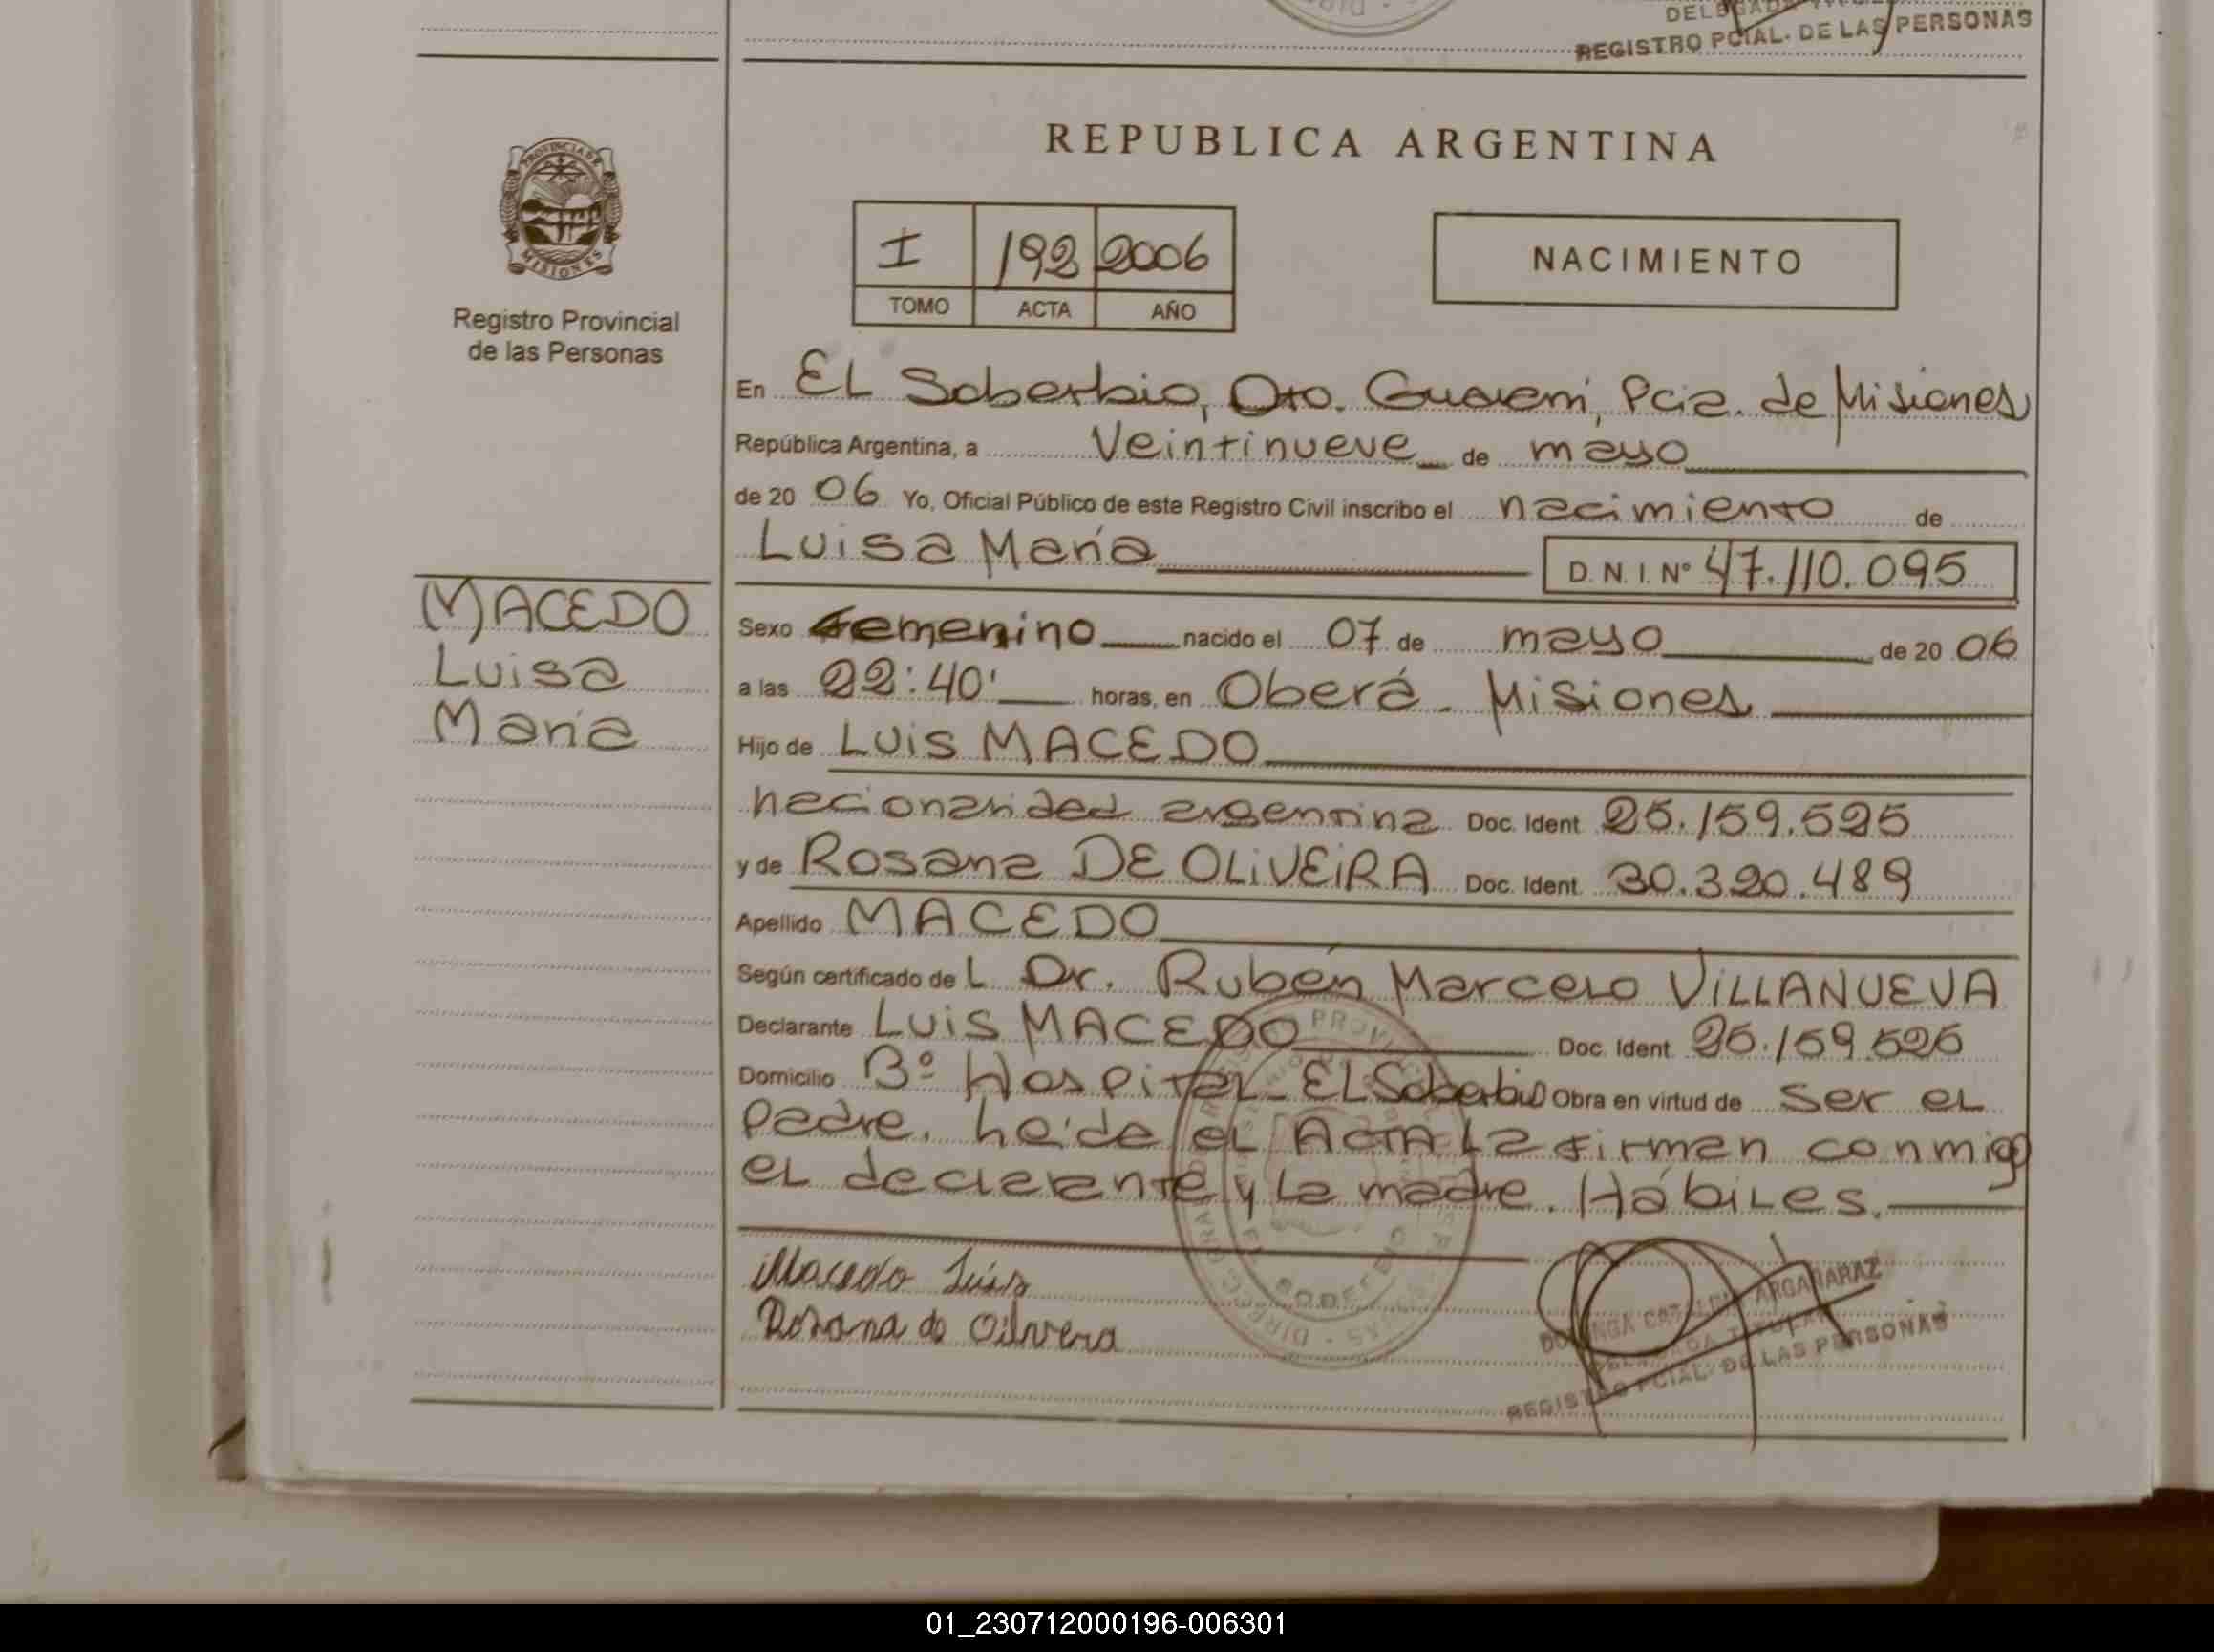 REGISTRO PCIAL. DE LAS PERSONAS
PROVINCIA DE
MISIONES
Registro Provincial
de las Personas
REPUBLICA ARGENTINA
I 192 2006
TOMO ACTA AÑO
NACIMIENTO
En EL Soberbio, Dto. Guaraní, Pcia. de Misiones
República Argentina, a Veintinueve de mayo
de 20 06 Yo, Oficial Público de este Registro Civil inscribo el nacimiento de
Luisa María D. N. I. Nº 47.110.095
MACEDO
Luisa
María
Sexo femenino nacido el 07 de mayo de 20 06
a las 22:40' horas, en Oberá - Misiones
Hijo de LUIS MACEDO
nacionalidad argentina Doc. Ident. 25.159.525
y de Rosana DE OLIVEIRA Doc. Ident. 30.320.489
Apellido MACEDO
Según certificado de L Dr. Rubén Marcelo VILLANUEVA
Declarante LUIS MACEDO Doc. Ident. 25.159.525
Domicilio Bº Hospital - EL Soberbio Obra en virtud de ser el
padre. Leída el ACTA La firman conmigo
el declarante y la madre. Hábiles.
Macedo Luis
Rosana de Oliveira
ARGAÑARAZ
DELEGADA TITULAR
REGISTRO PCIAL. DE LAS PERSONAS
01_230712000196-006301